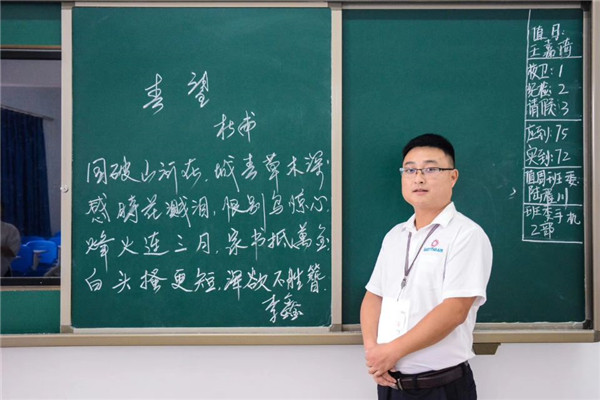 春望
杜甫
国破山河在，城春草木深
感时花溅泪，恨别鸟惊心
烽火连三月，家书抵萬金
白头搔更短，浑欲不胜簪
李鑫
值日：
王嘉琦
校卫：1
纪检：2
请假：3
应到：75
实到：72
值周班委
班委手机
2部